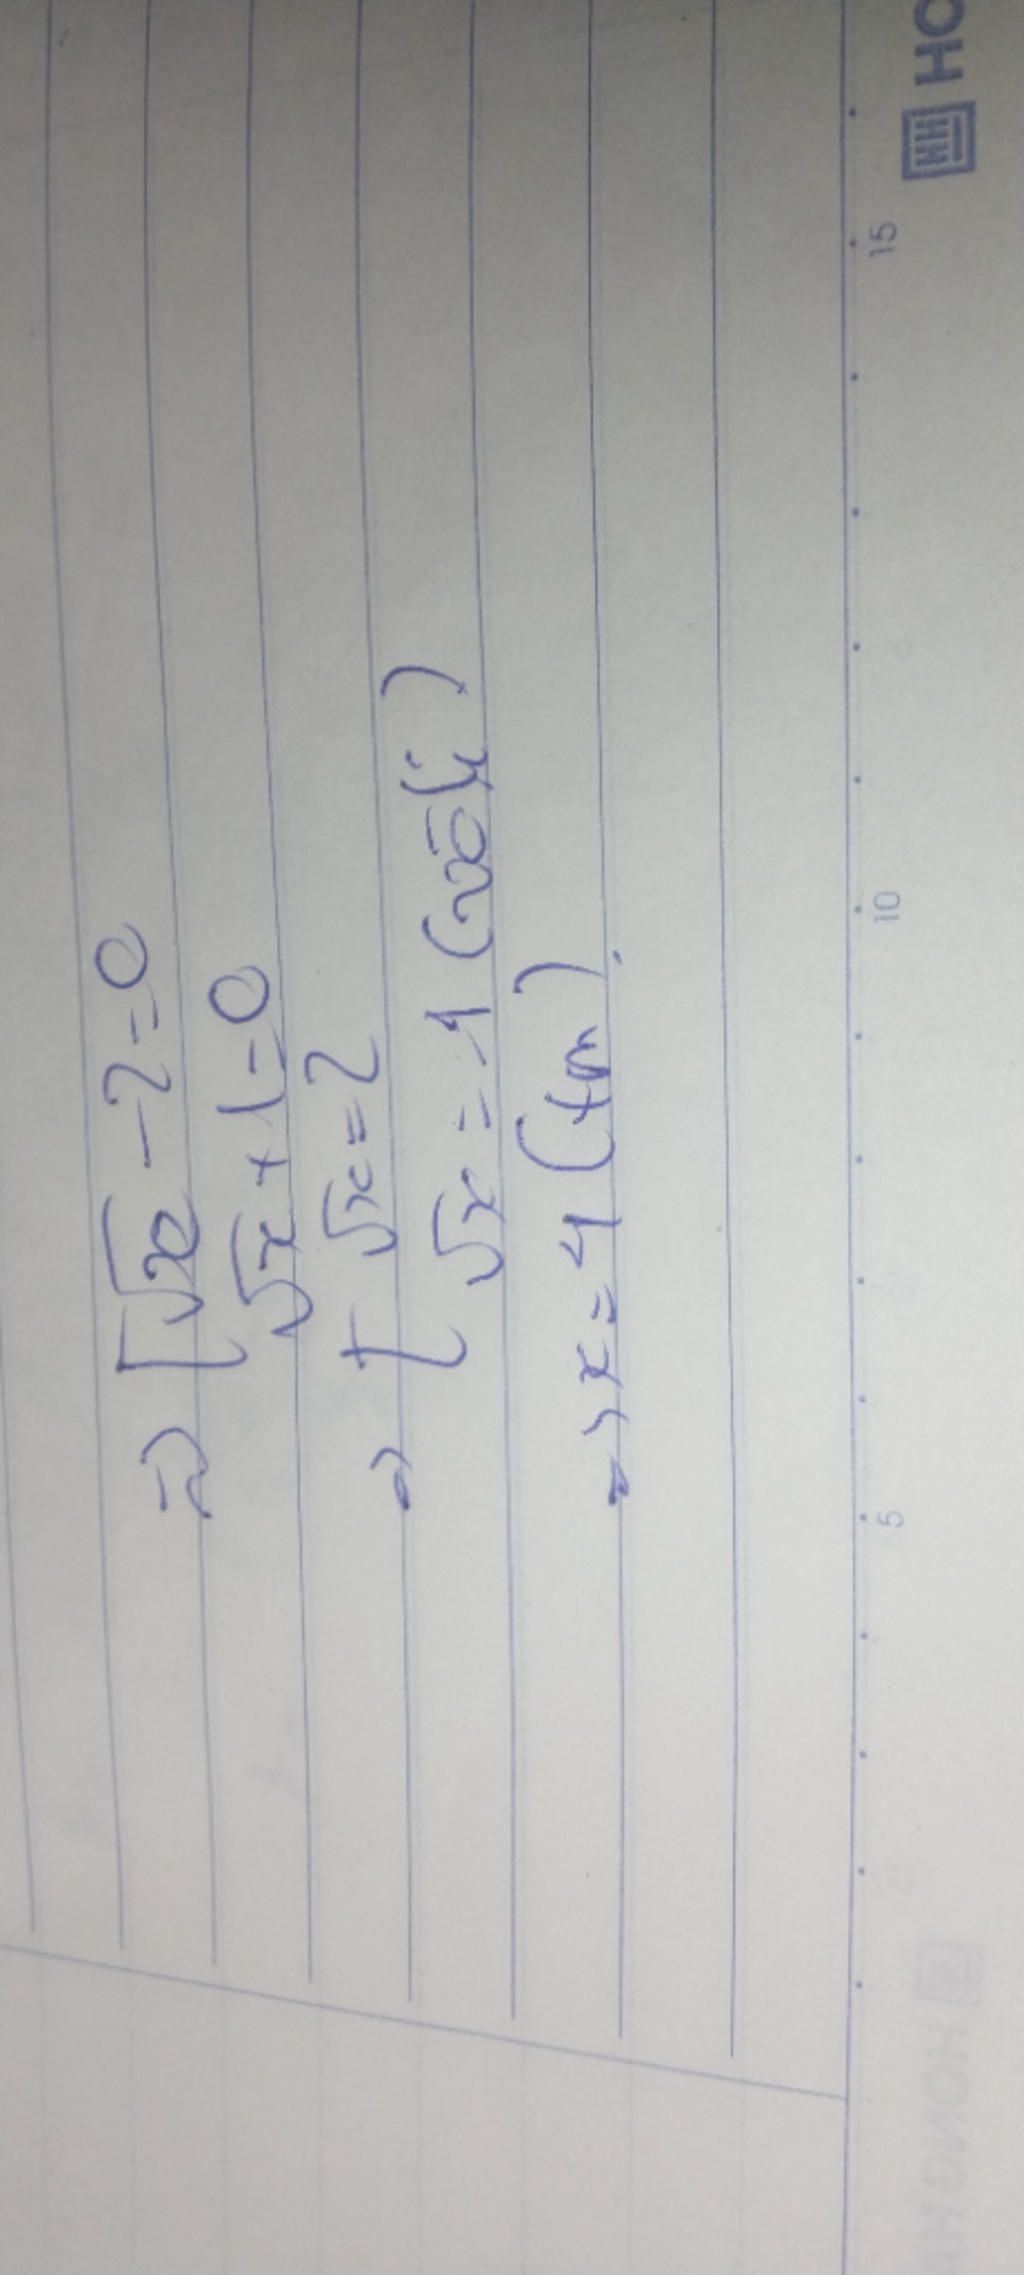 => [√x - 2 = 0
√x + 1 = 0
=> [√x = 2
√x = -1 (vô lí)
=> x = 4 (tm).
5 10 15
HO